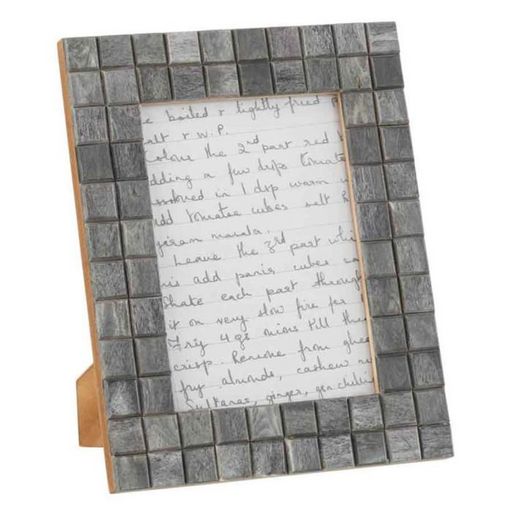 be boited & lightly fried P
alt & W.P.
Colour the 2nd part red
adding a few dsps tomato
in 1 dsp warm
add tomatoe cubes salt R
garam masala.
Leave the 3rd part whi
is add panir cubes sa
Shake each part through
it on very slow fire for
Fry 4 gs onions till the
crisp. Remove from ghee
fry almonds, cashew nu
Sultanas, ginger, gen chilli